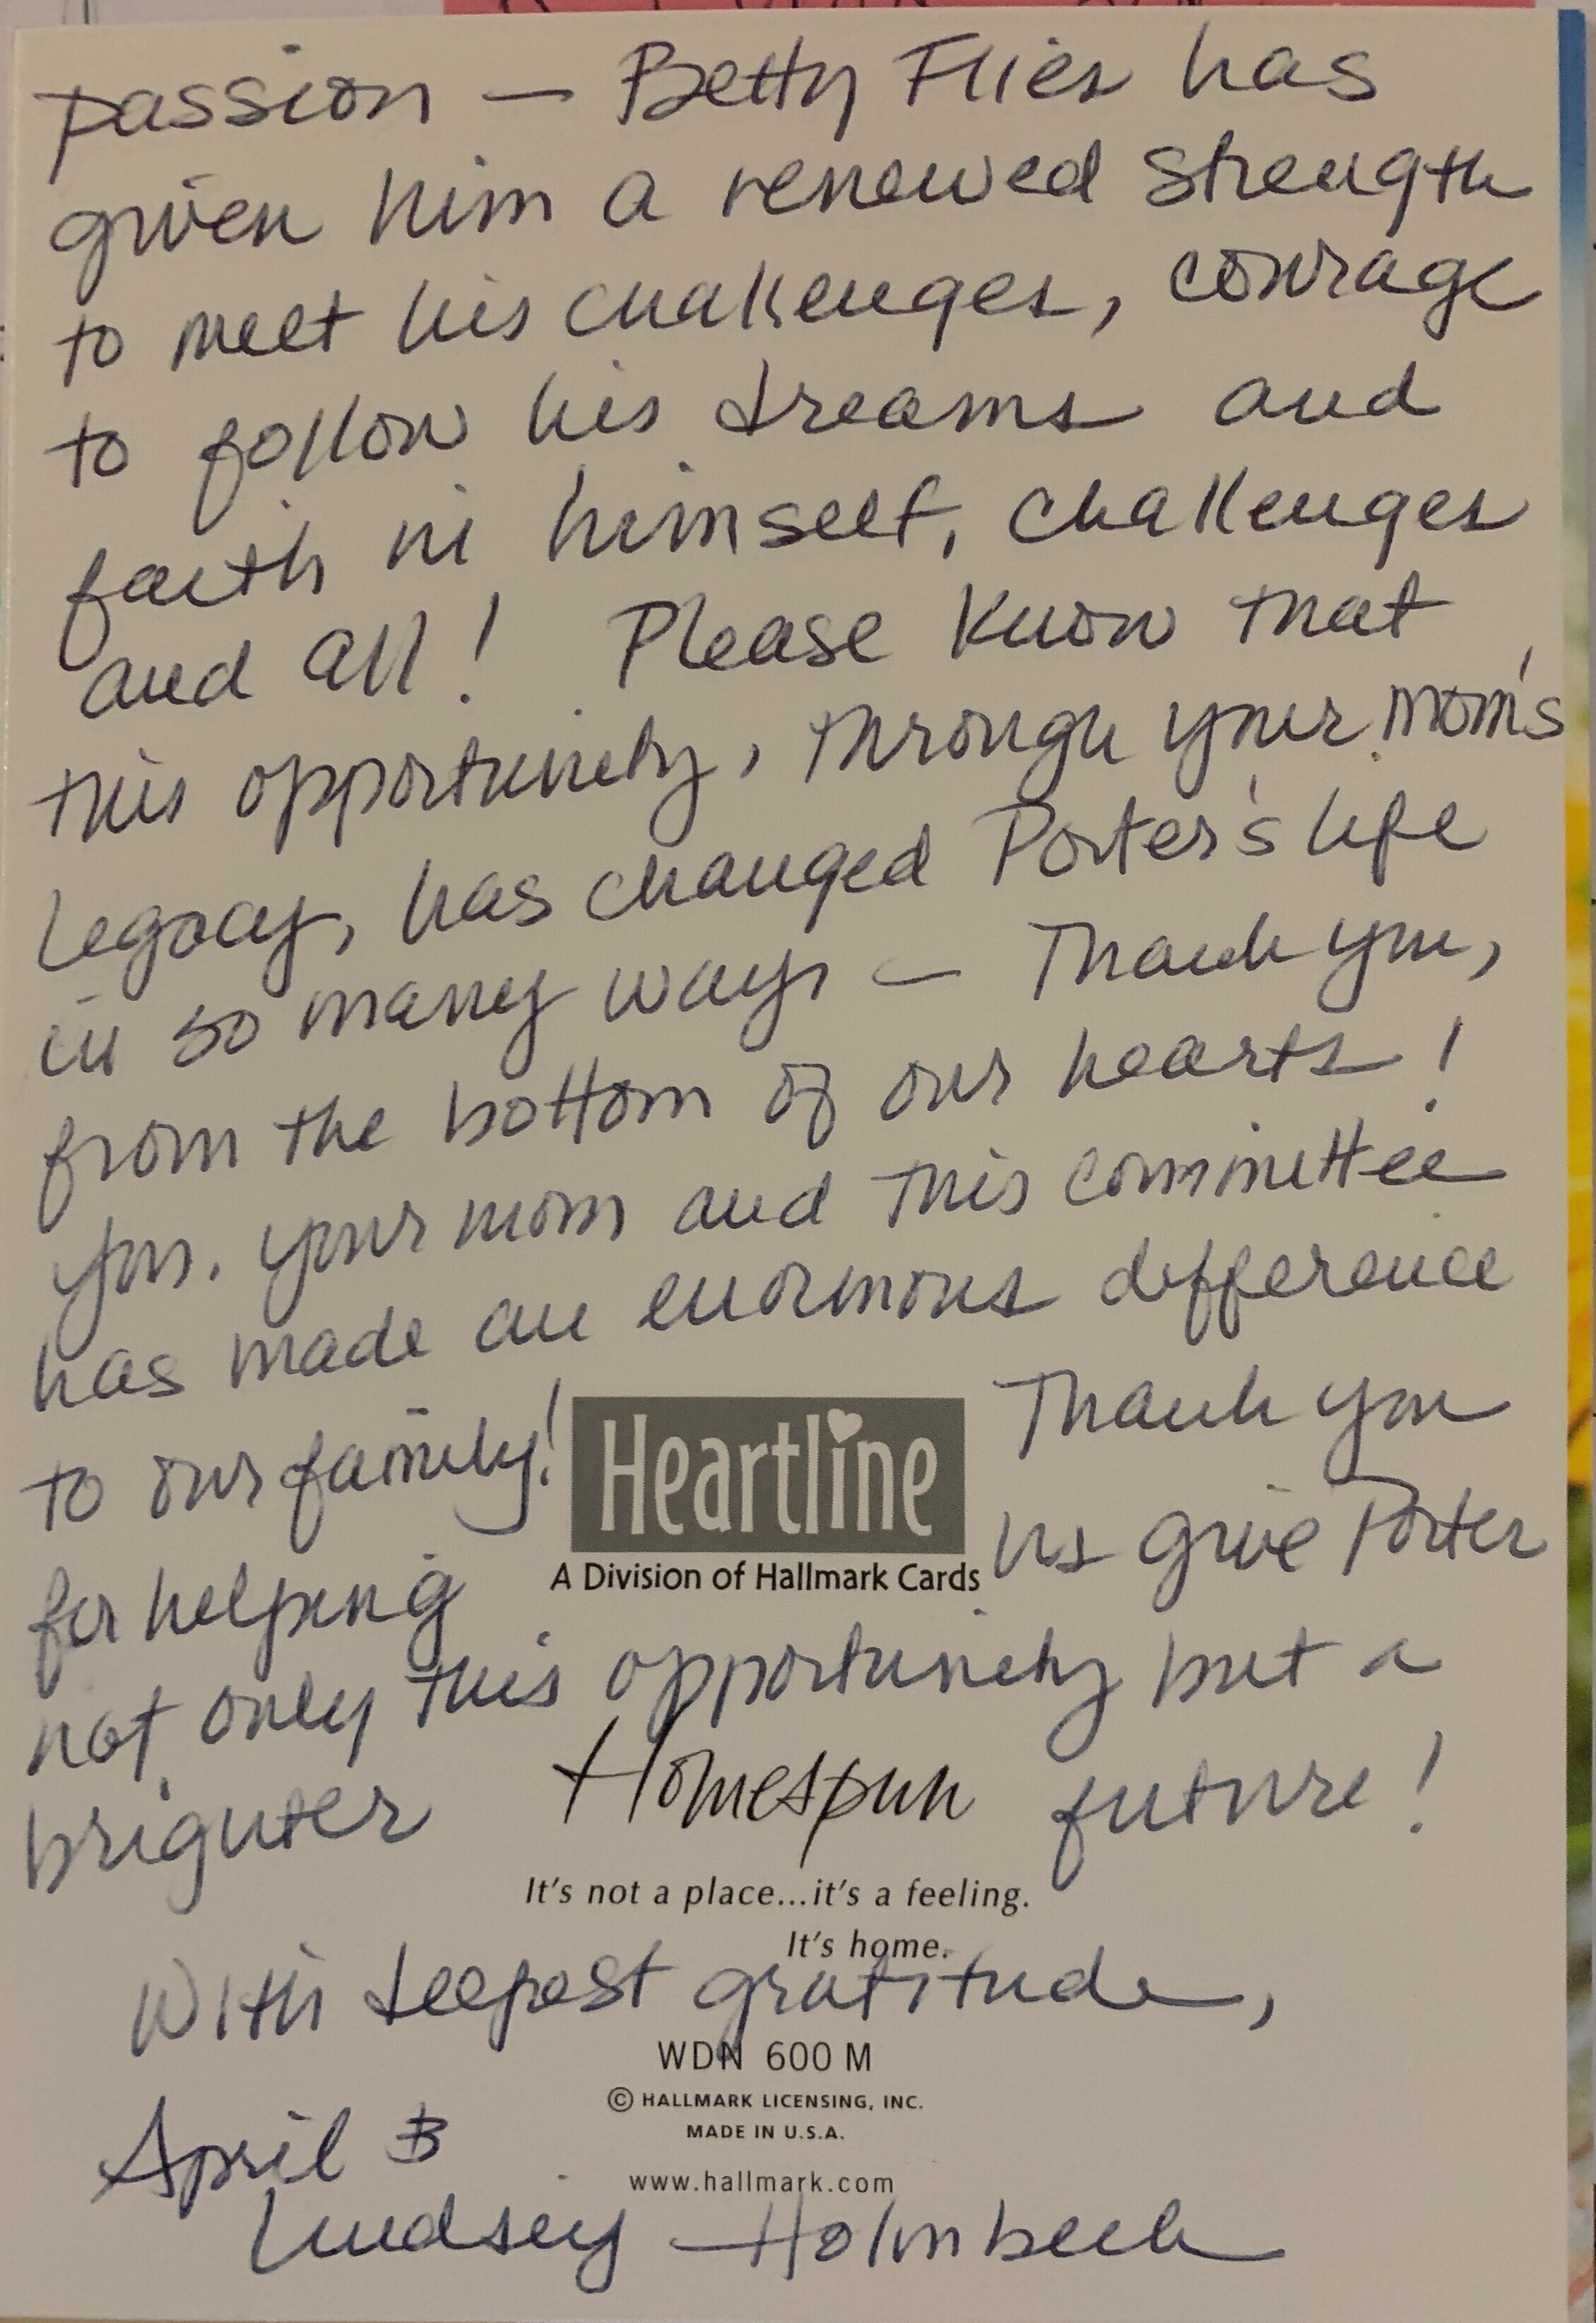 passion — Betty Flies has
given him a renewed strength
to meet his challenges, courage
to follow his dreams and
faith in himself, challenges
and all! Please know that
this opportunity, through your mom's
legacy, has changed Porter's life
in so many ways — Thank you,
from the bottom of our hearts!
You, your mom and this committee
has made an enormous difference
to our family! Thank you
Heartline
A Division of Hallmark Cards
for helping us give Porter
not only this opportunity but a
brighter future!
Homespun
It's not a place...it's a feeling.
It's home.
With deepest gratitude,
WDN 600 M
© HALLMARK LICENSING, INC.
MADE IN U.S.A.
www.hallmark.com
April &
Lindsey Holmbeck